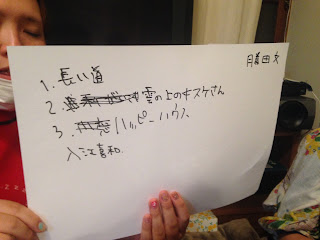 勝田文
1. 長い道
2. 雲の上のキスケさん
3. ハッピーハウス
入江喜和